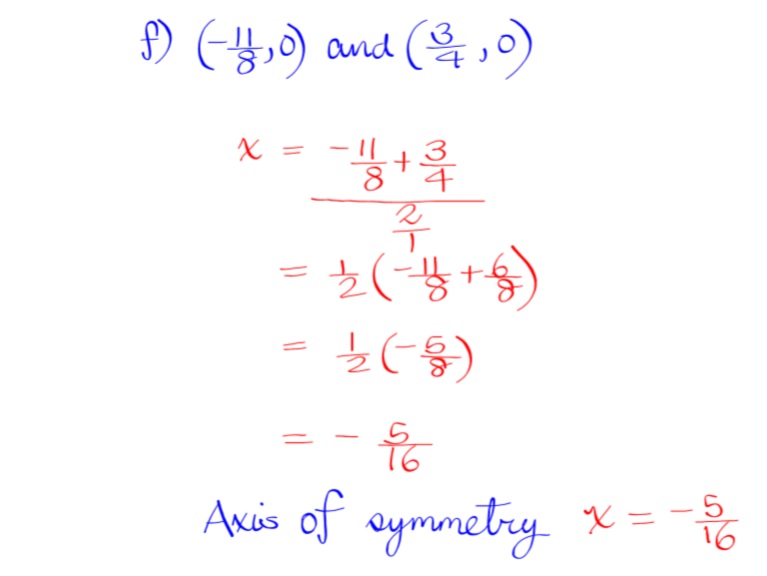 f) (-11/8, 0) and (3/4, 0)
x = (-11/8 + 3/4) / (2/1)
= 1/2 (-11/8 + 6/8)
= 1/2 (-5/8)
= - 5/16
Axis of symmetry x = -5/16